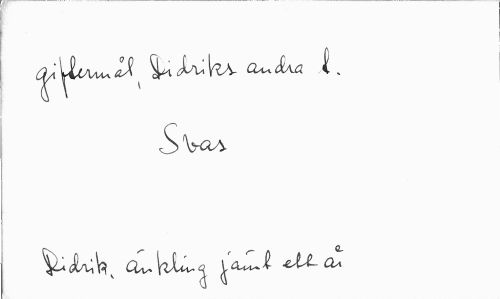 giftermål, Didriks andra t.
Svas
Didrik, änkling jämt ett år